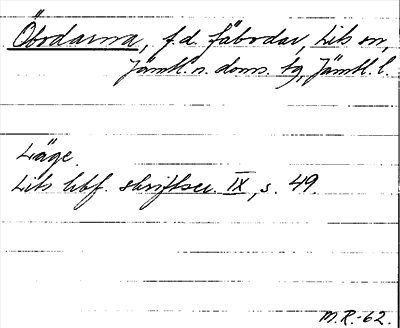 Öbodarna, f.d. fäbodar, Lits sn,
Jämtl:s n. doms. tg, Jämtl. l.
Läge.
Lits hbf. skriftser. IX, s. 49.
M.R.-62.